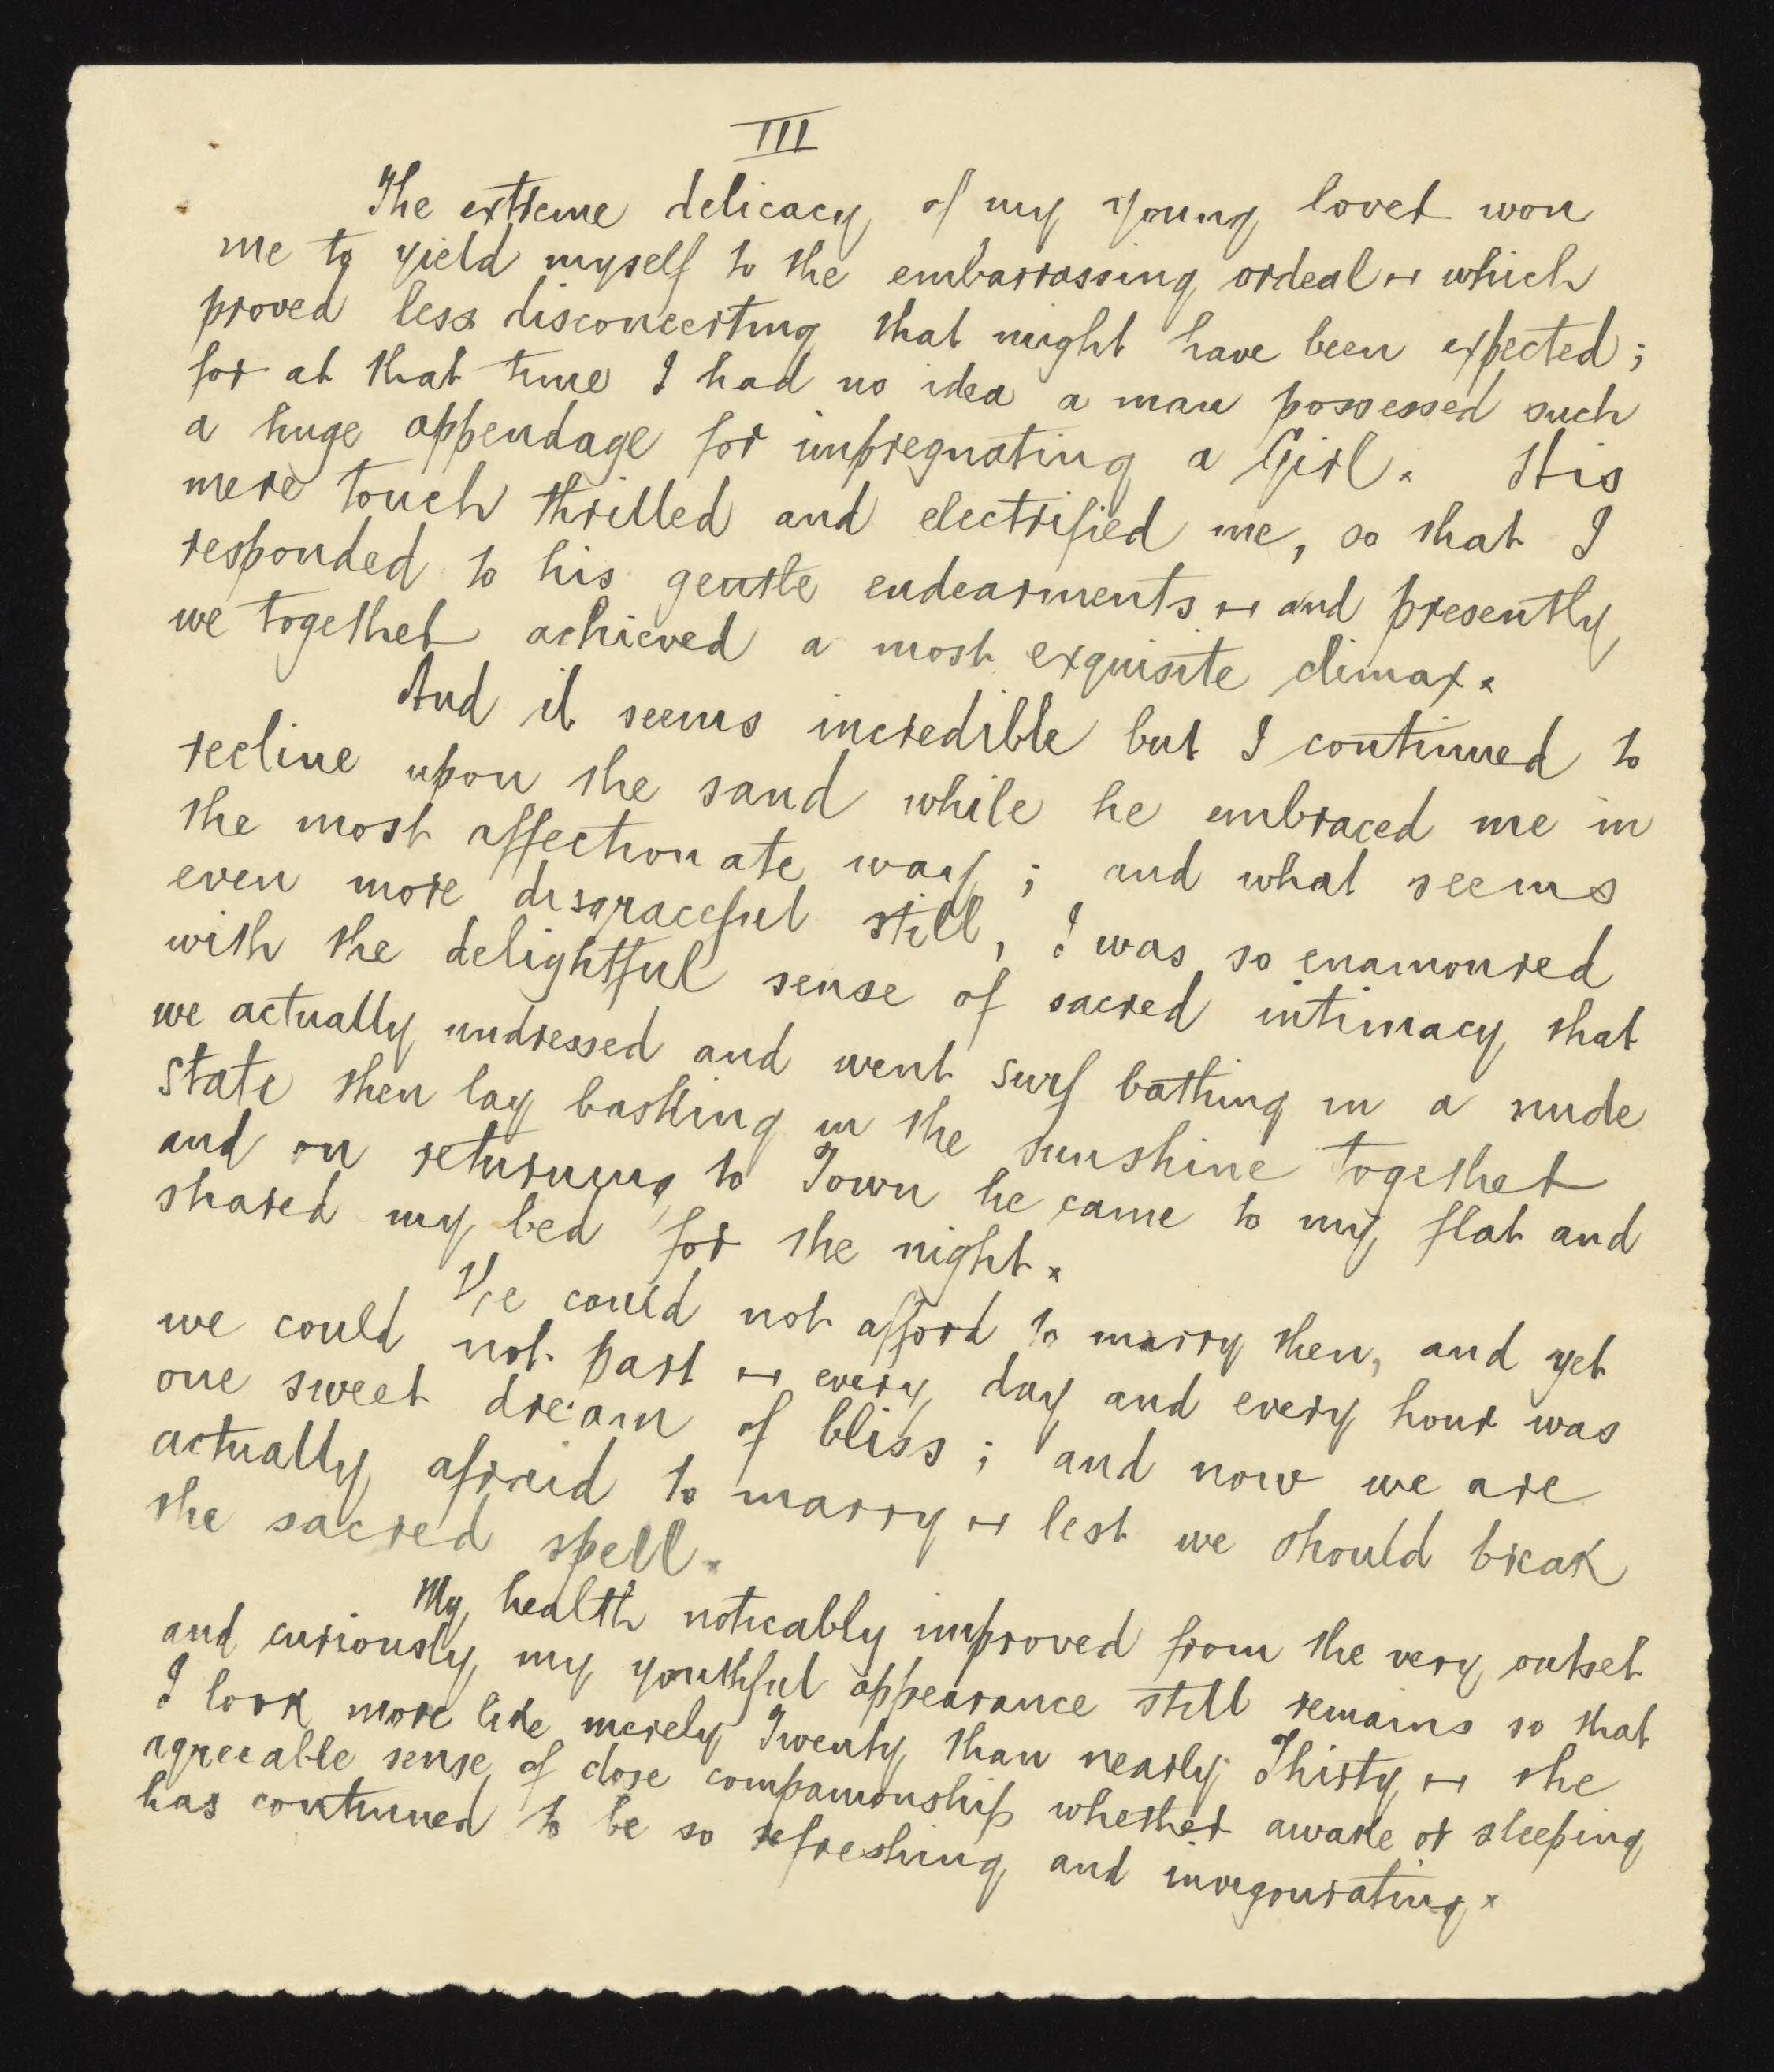 III
The extreme delicacy of my young lover won
me to yield myself to the embarrassing ordeal — which
proved less disconcerting that might have been expected;
for at that time I had no idea a man possessed such
a huge appendage for impregnating a Girl. His
mere touch thrilled and electrified me, so that I
responded to his gentle endearments — and presently
we together achieved a most exquisite climax.
And it seems incredible but I continued to
recline upon the sand while he embraced me in
the most affectionate way; and what seems
even more disgraceful still, I was so enamoured
with the delightful sense of sacred intimacy that
we actually undressed and went surf bathing in a nude
state then lay basking in the sunshine together
and on returning to Town he came to my flat and
shared my bed for the night.
We could not afford to marry then, and yet
we could not part — every day and every hour was
one sweet dream of bliss; and now we are
actually afraid to marry — lest we should break
the sacred spell.
My health noticably improved from the very outset
and curiously my youthful appearance still remains so that
I look more like merely Twenty than nearly Thirty — the
agreeable sense of close companionship whether awake or sleeping
has continued to be so refreshing and invigourating.